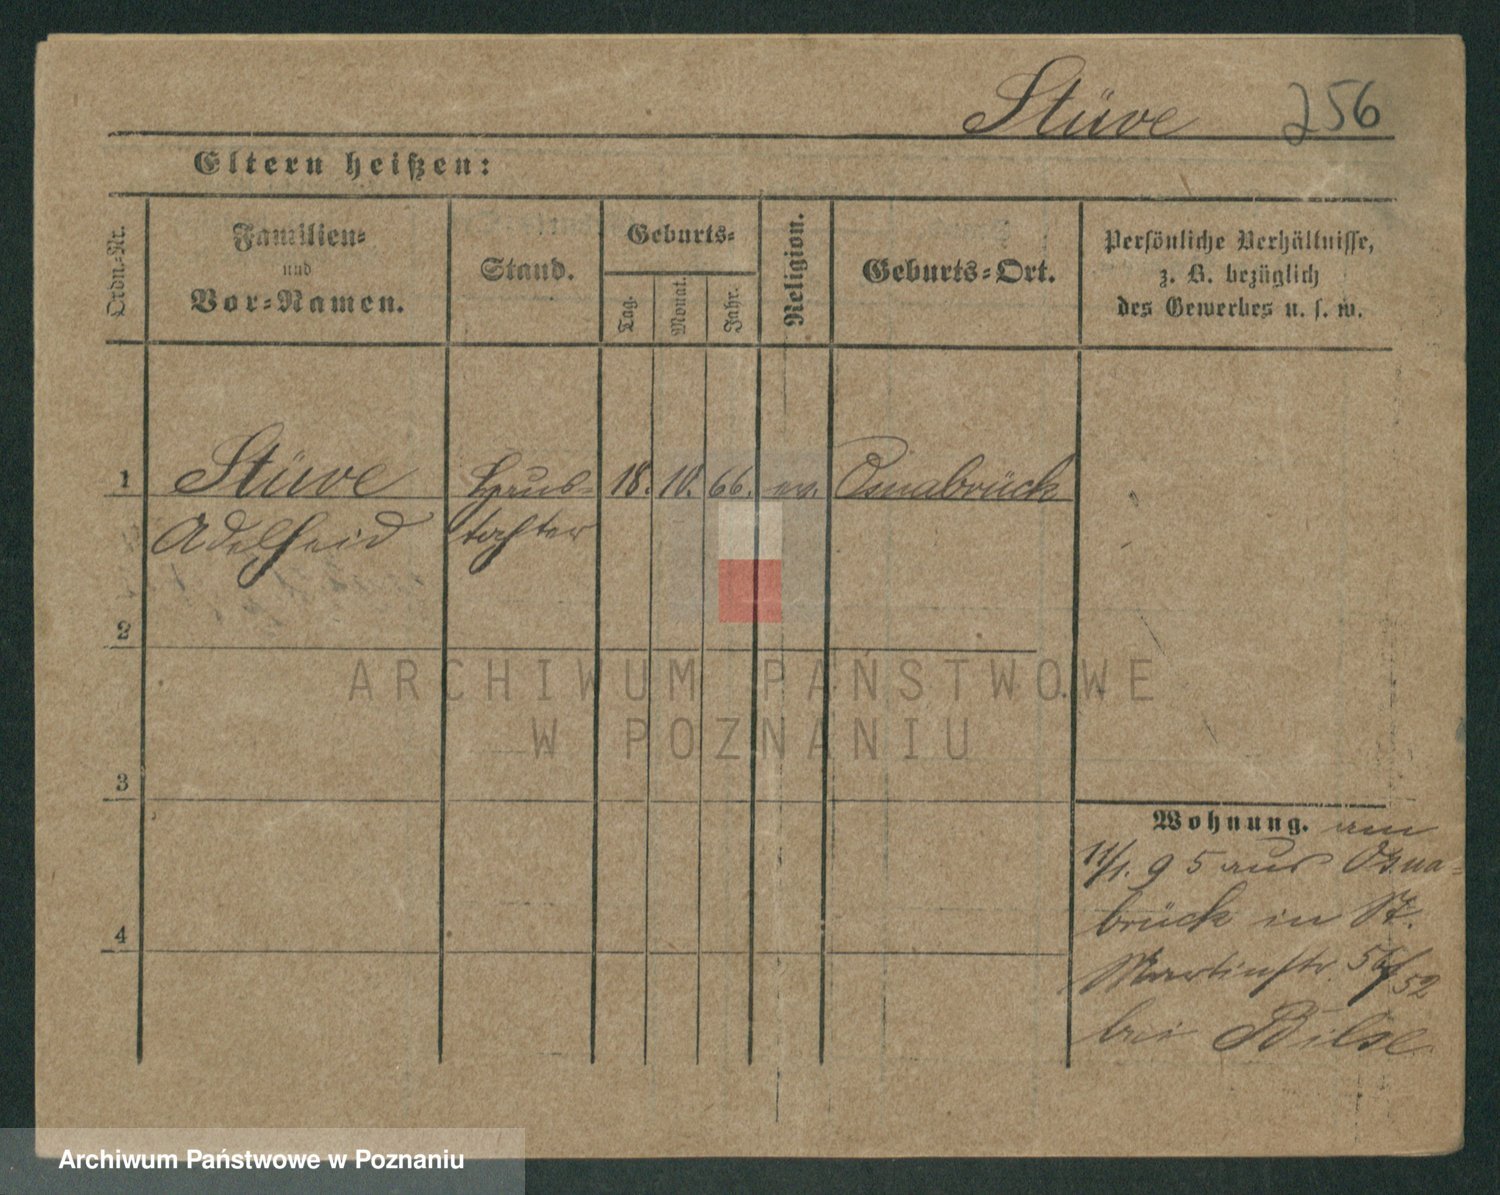 Stüve 256
Eltern heißen:
Ordn.-Nr.
Familien-
und
Vor-Namen.
Stand.
Geburts-
Tag.
Monat.
Jahr.
Religion.
Geburts-Ort.
Persönliche Verhältnisse,
z. B. bezüglich
des Gewerbes u. s. w.
1 Stüve Haus- 18. 10. 66. ev. Osnabrück
Adelheid tochter
2
3
4
Wohnung. am
11/1. 95 aus Osna-
brück in St.
Martinstr. 56/52
bei Bilse
ARCHIWUM PAŃSTWOWE
W POZNANIU
Archiwum Państwowe w Poznaniu